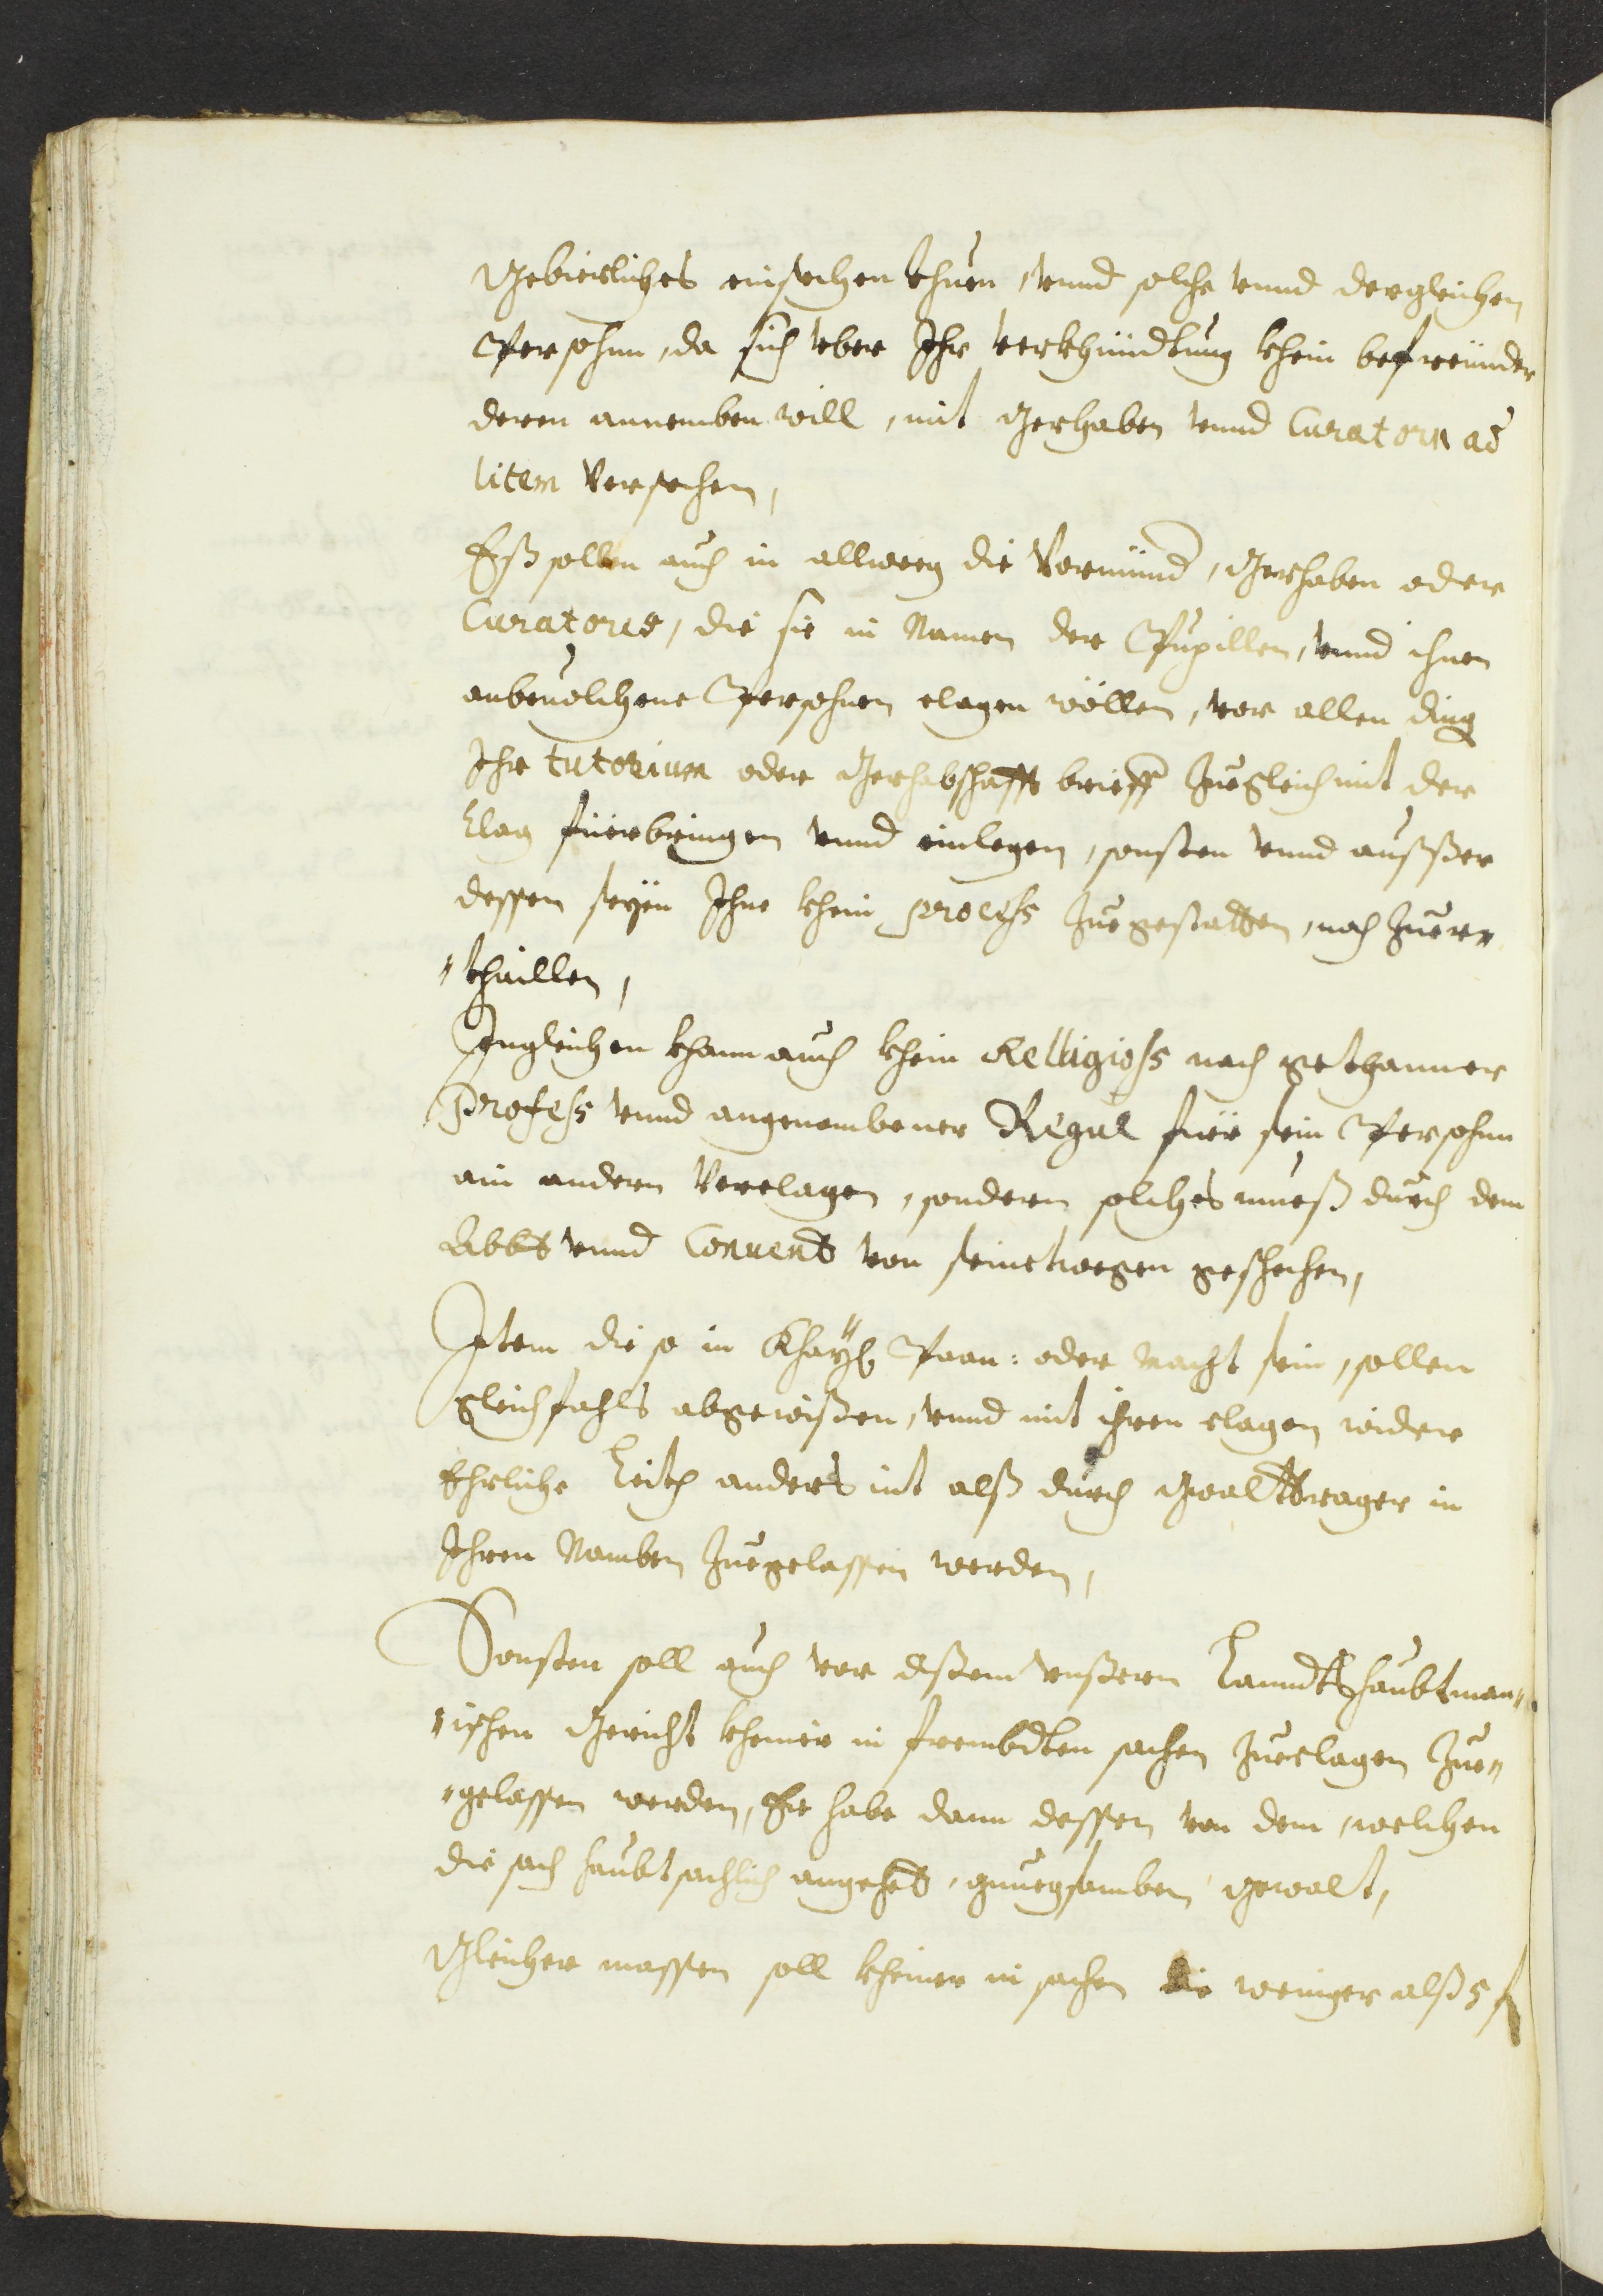 Gebierliches einsechen thuen, vnnd solche vnnd dergleichen
Persohnn, da sich vber Ihr verkhündtung khein befreünder
deren annemben will, mit Gerhaben vnnd Curatorn ad
litem versechen,
Eß sollen auch in allweeg die Vormünd, Gerhaben oder
Curatores, die sie in Namen der Pupillen, vnnd ihnen
anbeuolchene Persohnen clagen wöllen, vor allen ding
Ihr tutorium oder Gerhabschafft brieff zuegleich mit der
Clag fuerbringen vnnd einlegen, sonsten vnnd ausßer
dessen seyen Ihne khein process zuegestatten, noch zuer„
„thaillen,
Ingleichen khann auch khein Relligioss nach gethanner
Profess vnnd angenombener Regul fuer sein Persohnn
ain andern Verclagen, sondern solches mueß durch dem
Abbt vnnd Conuent von seinetwegen geschechen,
Item die so in Khayß: Paan: oder Aacht sein, sollen
gleichfahls abgewißen, vnnd mit ihren clagen wider
Ehrliche Leith anders nit alß durch Gwalttrager in
Ihren Namben zuegelassen werden,
Sonsten soll auch vor dißem vnßerm Lanndtshaubtman„
„ischen Gericht kheiner in frembdten sachen zueclagen zue„
„gelassen werden, Er habe dann dessen von dem, welchen
die sach haubtsachlich angehet, gnuegsamben gewalt,
Gleicher massen soll kheiner in sachen die weniger alß 5 f